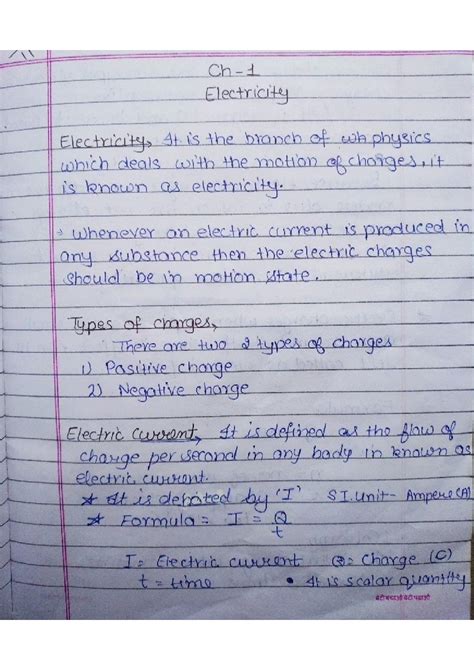 Ch - 1
Electricity
Electricity, It is the branch of physics
which deals with the motion of charges, it
is known as electricity.
→ Whenever an electric current is produced in
any substance then the electric charges
should be in motion state.
Types of charges,
There are two 2 types of charges
1) Positive charge
2) Negative charge
Electric Current, It is defined as the flow of
charge per second in any body in known as
electric current.
* It is denoted by 'I' S.I. unit - Ampere (A)
* Formula = I = Q/t
I = Electric current Q = Charge (C)
t = time • It is scalar quantity
बेटी बचाओ बेटी पढ़ाओ